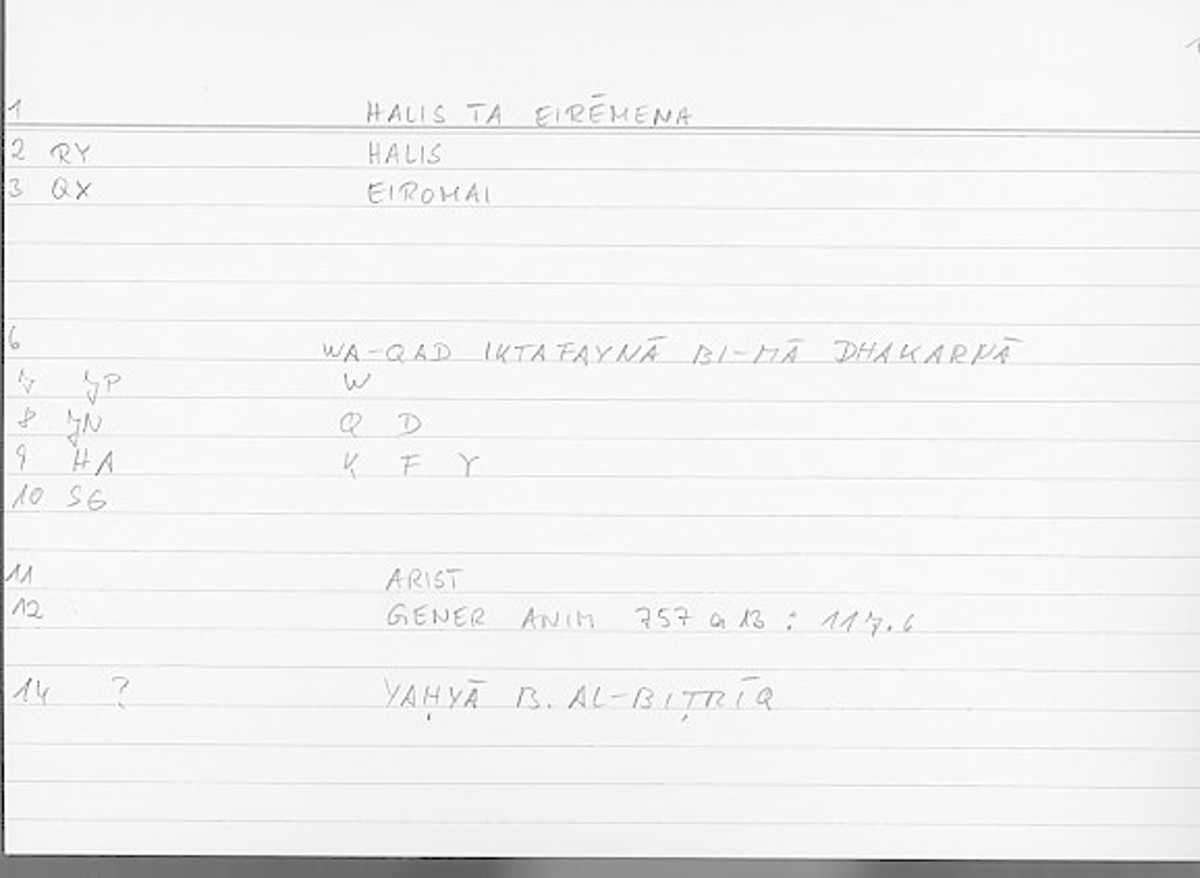 1 HALIS TA EIRĒMENA
2 RY HALIS
3 QX EIROMAI
6 WA-QAD IKTAFAYNĀ BI-MĀ DHAKARNĀ
7 JP W
8 JN Q D
9 HA K F Y
10 SG
11 ARIST
12 GENER ANIM 757 a 13 : 117.6
14 ? YAḤYĀ B. AL-BIṬRĪQ